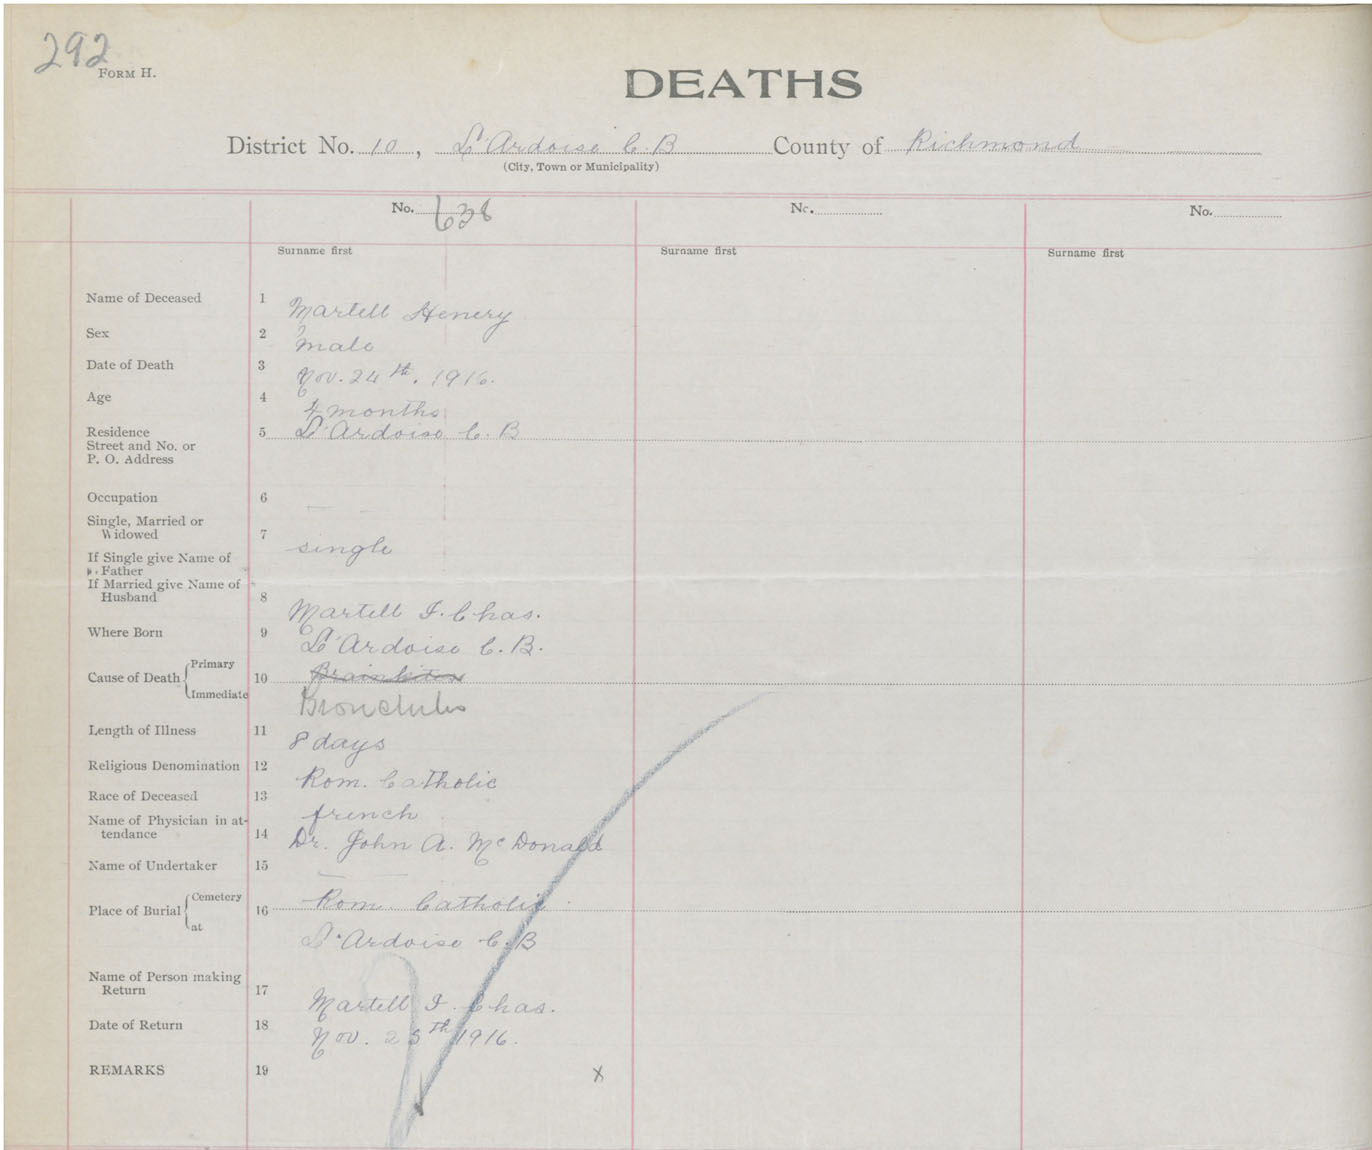 292
FORM H.
DEATHS
District No. 10, L'Ardoise C.B County of Richmond
(City, Town or Municipality)
No. 638 No. No.
Surname first Surname first Surname first
Name of Deceased 1 Martell Henery
Sex 2 male
Date of Death 3 Nov. 24th. 1916.
Age 4 4 months
Residence 5 L'Ardoise C. B
Street and No. or
P. O. Address
Occupation 6 —
Single, Married or
Widowed 7 single
If Single give Name of
Father
If Married give Name of
Husband 8 Martell I. Chas.
Where Born 9 L'Ardoise C. B.
Cause of Death { Primary 10
Immediate Bronchitis
Length of Illness 11 8 days
Religious Denomination 12 Rom. Catholic
Race of Deceased 13 french
Name of Physician in at-
tendance 14 Dr. John A. McDonald
Name of Undertaker 15 —
Place of Burial { Cemetery 16 Rom. Catholic
at L'Ardoise C. B
Name of Person making
Return 17 Martell I. Chas.
Date of Return 18 Nov. 25th 1916.
REMARKS 19 x